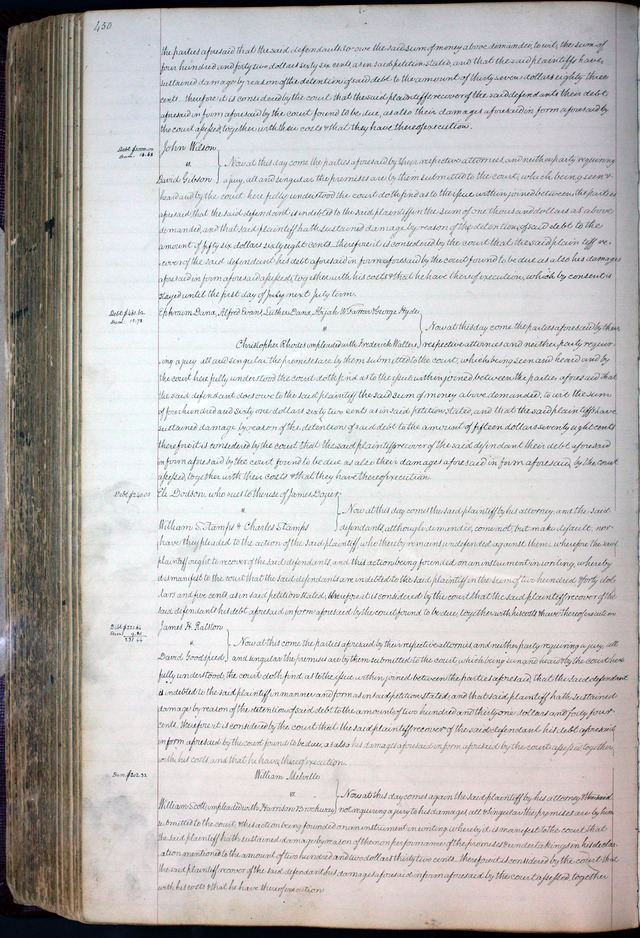 450
the parties aforesaid that the said defendants do owe the said sum of money above demanded, to wit, the sum of
four hundred and forty two dollars sixty six cents as in said petition stated, and that the said plaintiffs have
sustained damage by reason of the detention of said debt to the amount of thirty seven dollars eighty three
cents. therefore it is considered by the court that the said plaintiffs recover of the said defendants their debt
aforesaid in form aforesaid by the court found to be due, as also their damages aforesaid in form aforesaid by
the court assessed, together with their costs & that they have thereof execution.
John Wilson
vs
Now at this day come the parties aforesaid by their respective attornies and neither party requiring
David Gibson
a jury, all and singular the premises are by them submitted to the court, which being seen &
heard and by the court here fully understood the court doth find as to the issue within joined between the parties
aforesaid that the said defendant is indebted to the said plaintiff in the sum of one thousand dollars as above
demanded, and that said plaintiff hath sustained damage by reason of the detention of said debt to the
amount of fifty six dollars sixty eight cents. therefore it is considered by the court that the said plaintiff re-
cover of the said defendant his debt aforesaid in form aforesaid by the court found to be due as also his damages
aforesaid in form aforesaid assessed, together with his costs & that he have thereof execution, which by consent is
stayed until the first day of July next July term.
Ephraim Dana, Alfred Evans, Luther Dana, Abijah W. Farrar & George Hyde
vs
Now at this day come the parties aforesaid by their
Christopher Rhodes impleaded with Frederick Walters
respective attornies and neither party requir-
ing a jury all and singular the premises are by them submitted to the court, which being seen and heard and by
the court here fully understood the court doth find as to the issue within joined between the parties aforesaid that
the said defendant does owe to the said plaintiff the said sum of money above demanded, to wit the sum
of four hundred and sixty one dollars sixty two cents as in said petition stated, and that the said plaintiffs have
sustained damage by reason of the detention of said debt to the amount of fifteen dollars seventy eight cents
therefore it is considered by the court that the said plaintiffs recover of the said defendant their debt aforesaid
in form aforesaid by the court found to be due as also their damages aforesaid in form aforesaid, by the court
assessed, together with their costs & that they have thereof execution.
Eli Dodson, who sues to the use of James
vs
Now at this day comes the said plaintiff by his attorney, and the said
William S. Stamps & Charles Stamps
defendants although demanded, come not, but make default, nor
have they pleaded to the action of the said plaintiff who thereby remains undefended against them, wherefore the said
plaintiff ought to recover of the said defendants, and this action being founded on an instrument in writing, whereby
is manifest to the court that the said defendants are indebted to the said plaintiff in the sum of two hundred & forty dol-
lars and five cents as in said petition stated, therefore it is considered by the court that the said plaintiff recover of the
said defendants his debt aforesaid in form aforesaid by the court found to be due, together with his costs & have thereof execution
James H. Ralston
vs
Now at this come the parties aforesaid by their respective attornies and neither party requiring a jury, all
David Goodspeed
and singular the premises are by them submitted to the court, which being seen and heard & by the court here
fully understood, the court doth find as to the issue within joined between the parties aforesaid, that the said defendant
is indebted to the said plaintiff in manner and form as in said petition stated, and that said plaintiff hath sustained
damage by reason of the detention of said debt to the amount of two hundred and thirty one dollars and forty four
cents. therefore it is considered by the court that the said plaintiff recover of the said defendant his debt aforesaid
in form aforesaid by the court found to be due, as also his damages aforesaid in form aforesaid by the court assessed, together
with his costs and that he have thereof execution.
William Melville
vs
Now at this day comes again the said plaintiff by his attorney &
William Scott impleaded with Harrison Brockway
not requiring a jury to his damages, all & singular the premises are by him
submitted to the court & this action being founded on an instrument in writing whereby it is manifest to the court that
the said plaintiff hath sustained damage by reason of the non performance of the promises & undertakings in his declar-
ation mentioned to the amount of two hundred and two dollars thirty two cents. therefore it is considered by the court that
the said plaintiff recover of the said defendant his damages aforesaid in form aforesaid by the court assessed together
with his costs & that he have thereof execution